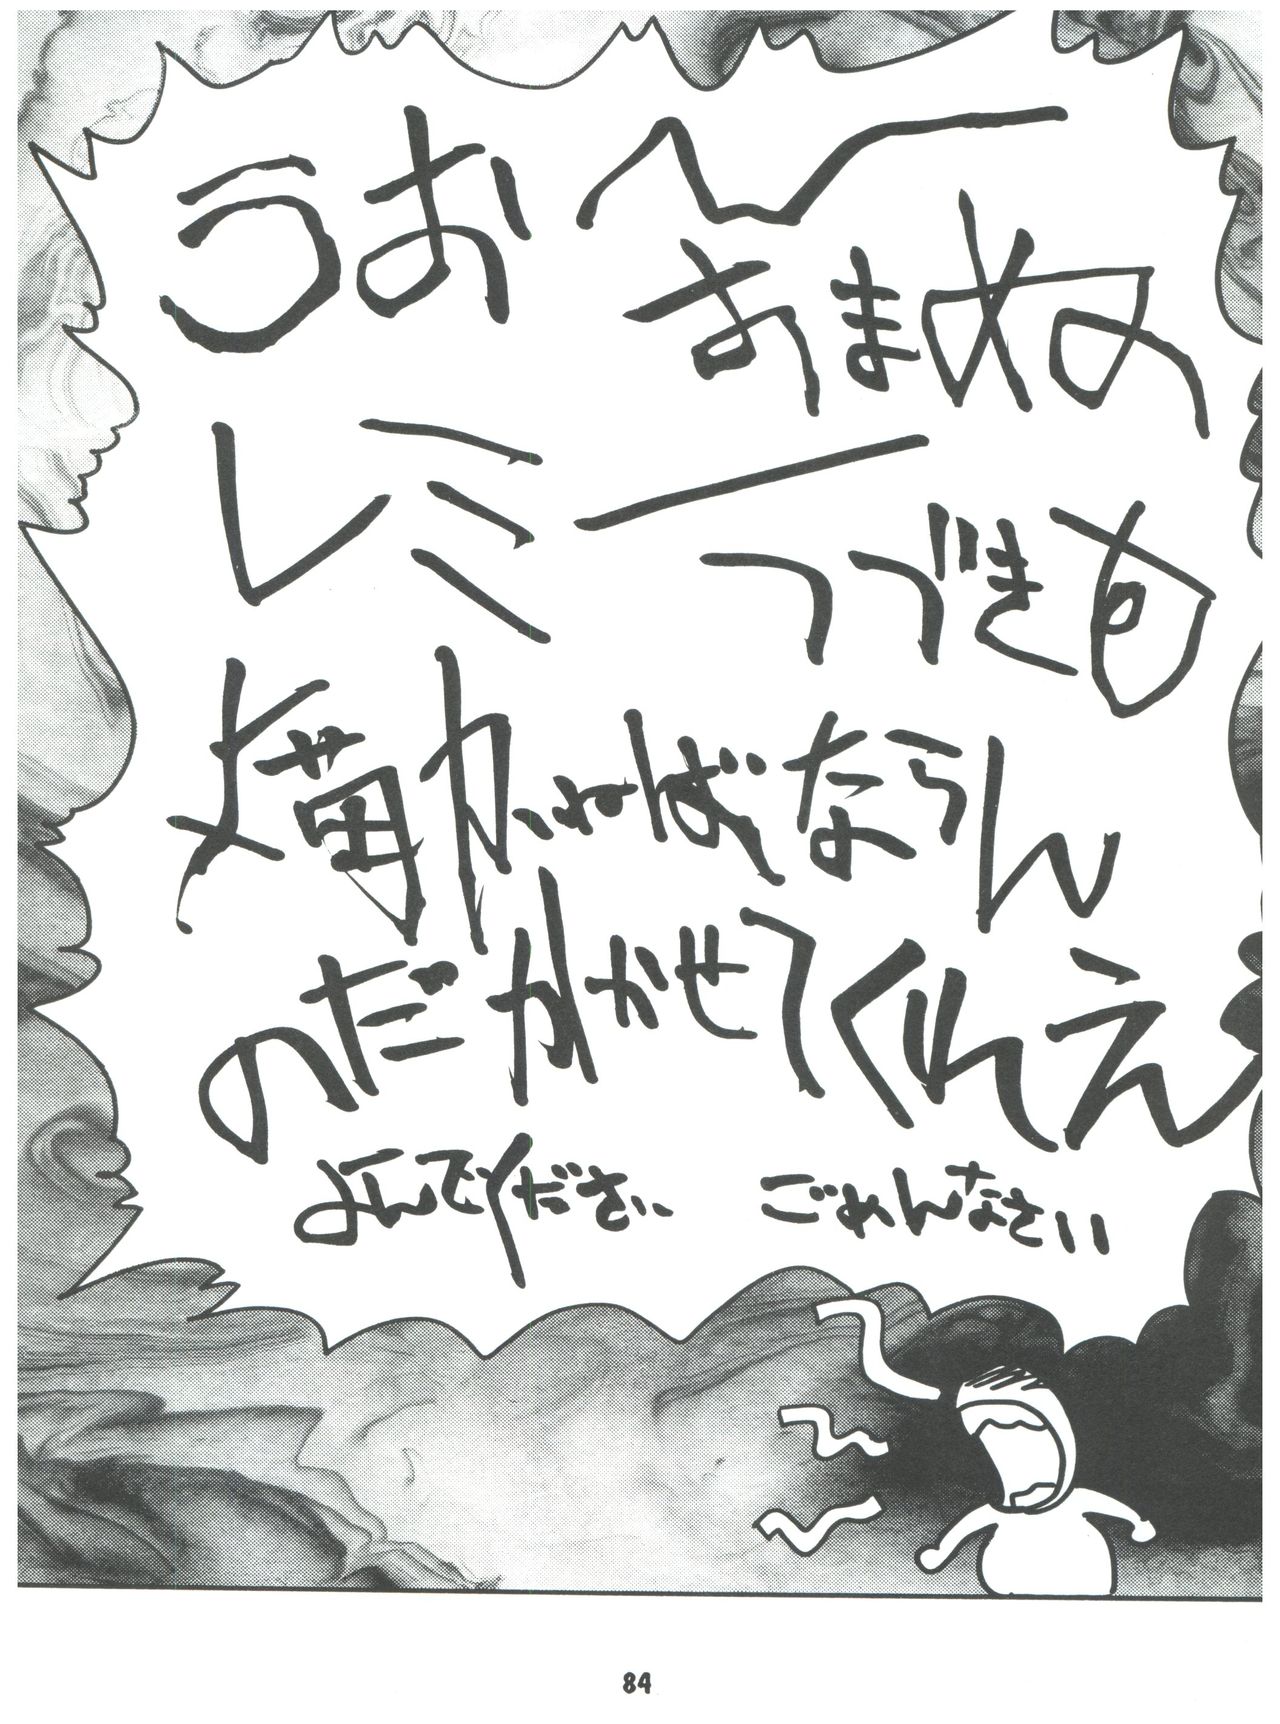 うお〜
あまぬの
レミー
つづきも
描かねばならん
のだ かかせてくれえ
よんでください ごめんなさい
84